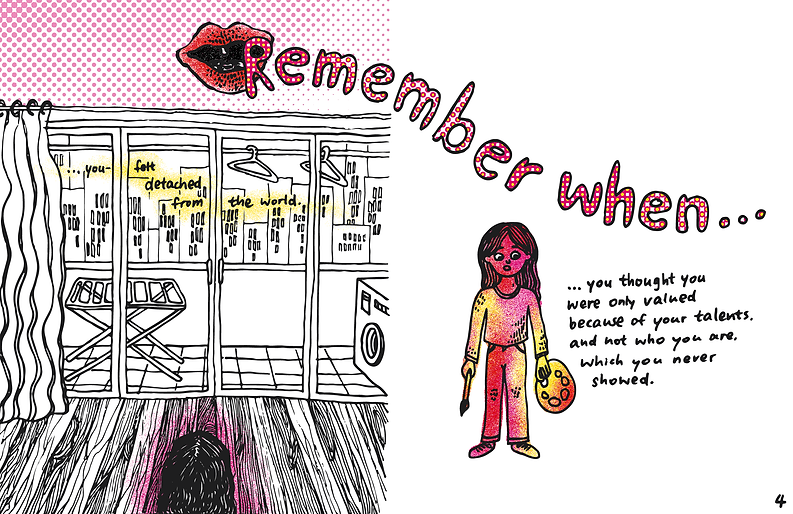 Remember when...
...you felt
detached
from the world.
... you thought you
were only valued
because of your talents,
and not who you are,
which you never
showed.
4